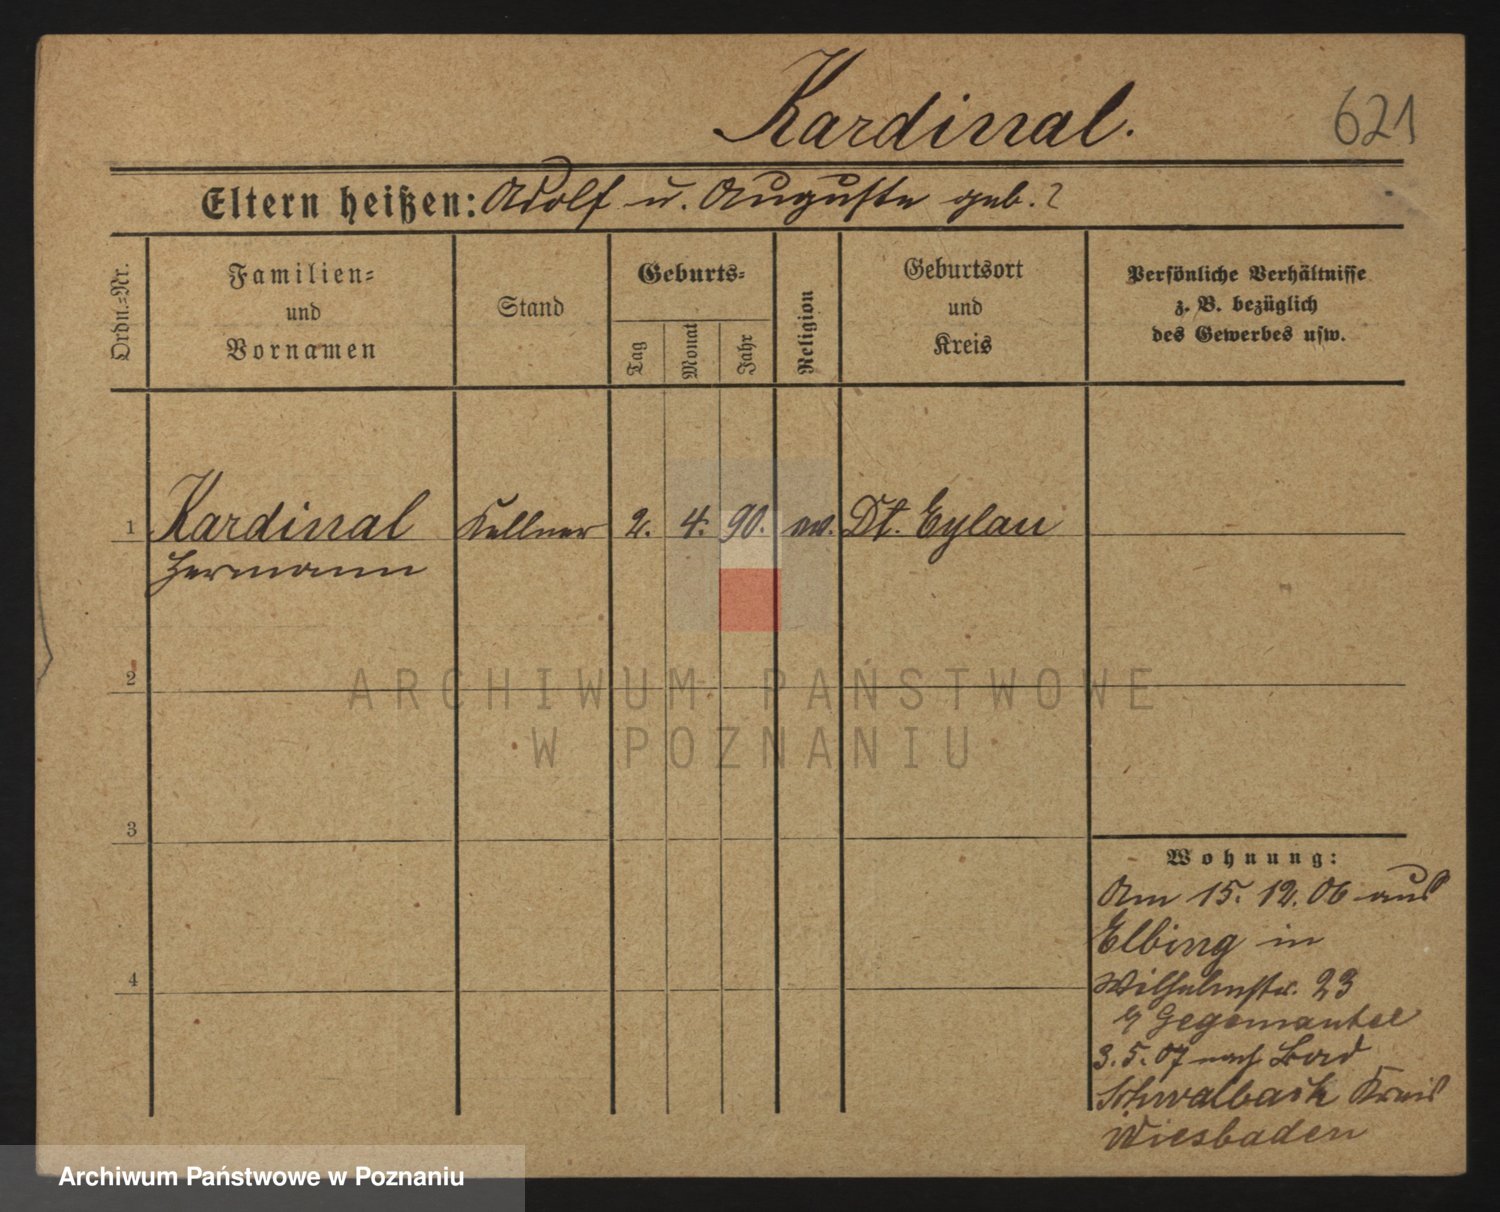 Kardinal.
621
Eltern heißen: Adolf u. Auguste geb. ?
Ordn.-Nr.
Familien-
und
Vornamen
Stand
Geburts-
Tag
Monat
Jahr
Religion
Geburtsort
und
Kreis
Persönliche Verhältnisse
z. B. bezüglich
des Gewerbes usw.
1 Kardinal Kellner 2. 4. 90. ev. Dt. Eylau
Hermann
2
3
4
Wohnung:
Am 15. 12. 06 aus
Elbing in
Wilhelmstr. 23
3. 5. 07 nach Bad
Schwalbach Kreis
Wiesbaden
ARCHIWUM PAŃSTWOWE
W POZNANIU
Archiwum Państwowe w Poznaniu